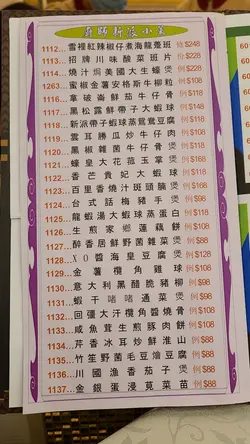 廚師新菠小菜
1112...雪裡紅辣椒仔煮海龍躉班 例$248
1113...招牌川味酸菜班片 份$228
1114...燒汁焗美國大生蠔煲 例$228
1263...蜜椒金薯安格斯牛柳粒 例$108
1116...拿破崙鮮茄牛仔骨 例$118
1117...黑松露鮮帶子大蝦球 例$148
1118...新派帶子蝦球蒸鴛鴦豆腐 例$148
1119...雲耳勝瓜炒牛仔肉 例$108
1120...黑椒雜菌牛仔骨煲 例$118
1121...蠔皇大花菰玉掌煲 例$168
1122...香芒貴妃大蝦球 例$118
1123...百里香燒汁斑頭腩煲 例$168
1124...台式話梅豬手煲 例$98
1125...龍蝦湯大蝦球蒸蛋白 例$118
1126...生煎家鄉蓮藕餅 例$108
1127...醉香居鮮野菌雜菜煲 例$88
1128...XO醬海皇豆腐煲 例$128
1129...金薯欖角雞球 例$108
1130...意大利黑醋脆豬柳 例$98
1131...蝦干啫啫通菜煲 例$98
1132...回疆大汗欖角醬燒骨 例$108
1133...咸魚茸生煎豚肉餅 例$108
1134...芹香冰耳炒鮮淮山 例$88
1135...竹笙野菌毛豆燴豆腐 例$88
1136...川國漁香茄子煲 例$88
1137...金銀蛋浸莧菜苗 例$88